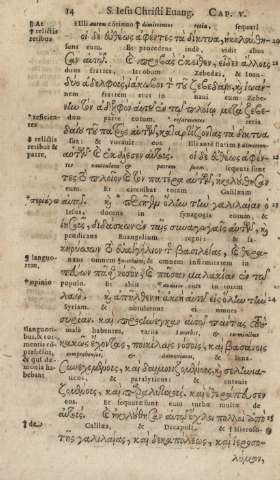 14 S. Iesu Christi Euang. CAP. V.
At Illi autem continuò relictis, sequuti
relictis οἱ δὲ εὐθέως ἀφέντες τὰ δίκτυα, ἠκολούθη-
retibus sunt eum. Et procedens inde, vidit alios
σαν αὐτῷ. καὶ προβὰς ἐκεῖθεν, εἶδεν ἄλλους
duos fratres, Iacobum Zebedæi, & Ioan-
δύο ἀδελφοὺς, ἰάκωβον τ̀ τοῦ ζεβεδαίου, καὶ ἰωάν-
nem fratrem eius in naui cum Zebe-
νην τὸν ἀδελφὸν αὐτοῦ ἐν τῷ πλοίῳ μετὰ ζεβε-
reficien- dæo patre eorum,
tes δαίου τοῦ πατρὸς αὐτῶν, καταρτίζοντας τὰ δίκτυα
relictis sua: & vocauit eos. Illi autem statim
retibus αὐτῶν. καὶ ἐκάλεσεν αὐτούς. οἱ δὲ εὐθέως ἀφέν-
& patre, patrem suum, sequuti sunt
τες τὸ πλοῖον καὶ τὸν πατέρα αὐτῶν, ἠκολούθησαν
eum. Et circuibat totam Galilæam
αὐτῷ. καὶ περιῆγεν ὅλην τὴν γαλιλαίαν ὁ
Iesus, docens in synagogis eorum, &
ἰησοῦς, διδάσκων ἐν ταῖς συναγωγαῖς αὐτῶν, καὶ
prædicans Euangelium regni: &
κηρύσσων τὸ εὐαγγέλιον τῆς βασιλείας, καὶ θερα-
languo- nans omnem & omnem infirmitatem in
rem, πεύων πᾶσαν νόσον, καὶ πᾶσαν μαλακίαν ἐν τῷ
opinio populo. Et abiit eius in totam
λαῷ. καὶ ἀπῆλθεν ἡ ἀκοὴ αὐτοῦ εἰς ὅλην τὴν
Syriam. & obtulerunt ei omnes
συρίαν. καὶ προσήνεγκαν αὐτῷ πάντας τοὺς
languori- malè habentes, variis & 
bus, & tor- κακῶς ἔχοντας, ποικίλαις νόσοις, καὶ βασάνοις
mentis cō- & dæmoniacos, &
prehensos, συνεχομένους, καὶ δαιμονιζομένους, καὶ σεληνια-
& qui dæ-
monia ha- ticos, & paralyticos: & curauit
bebant ζομένους, καὶ παραλυτικούς. καὶ ἐθεράπευσεν
eos. & sequutæ sunt eum turbæ multæ de
αὐτούς. καὶ ἠκολούθησαν αὐτῷ ὄχλοι πολλοὶ ἀπὸ
de Galilæa, & Decapoli, & Hieroso-
τῆς γαλιλαίας, καὶ δεκαπόλεως, καὶ ἱεροσο-
λύμων,